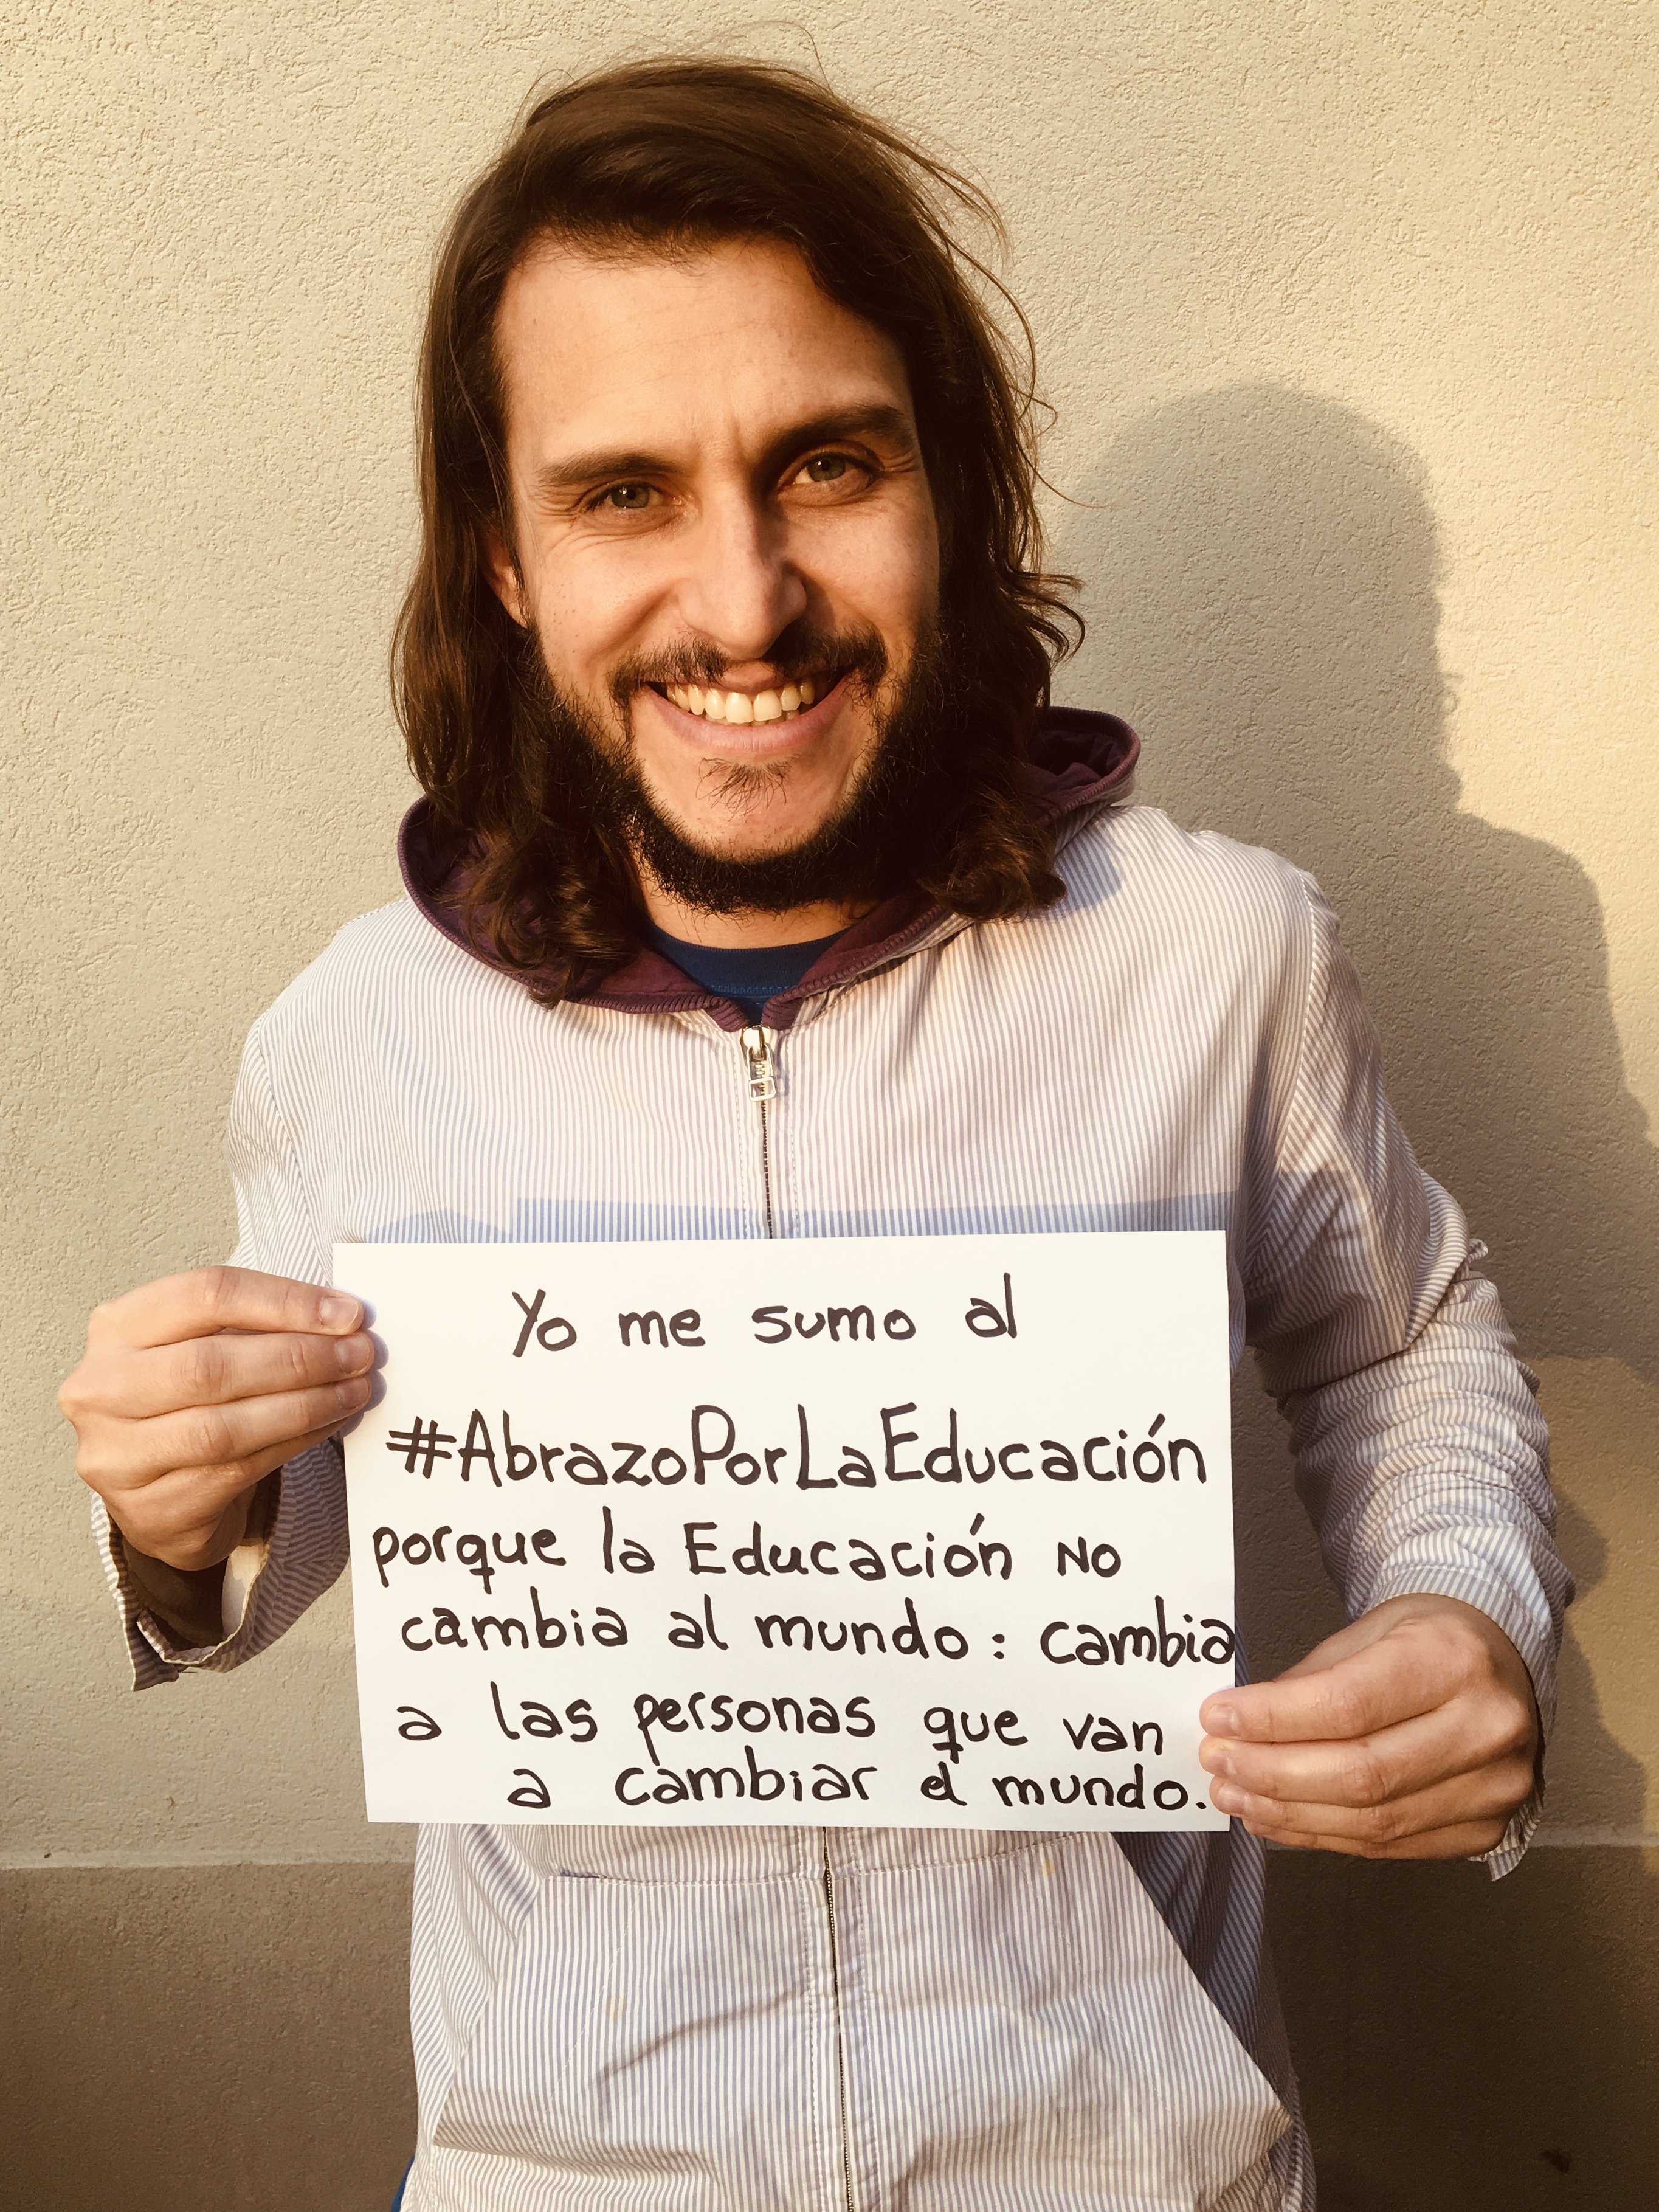 Yo me sumo al
#AbrazoPorLaEducación
porque la Educación NO
cambia al mundo: cambia
a las personas que van
a cambiar el mundo.